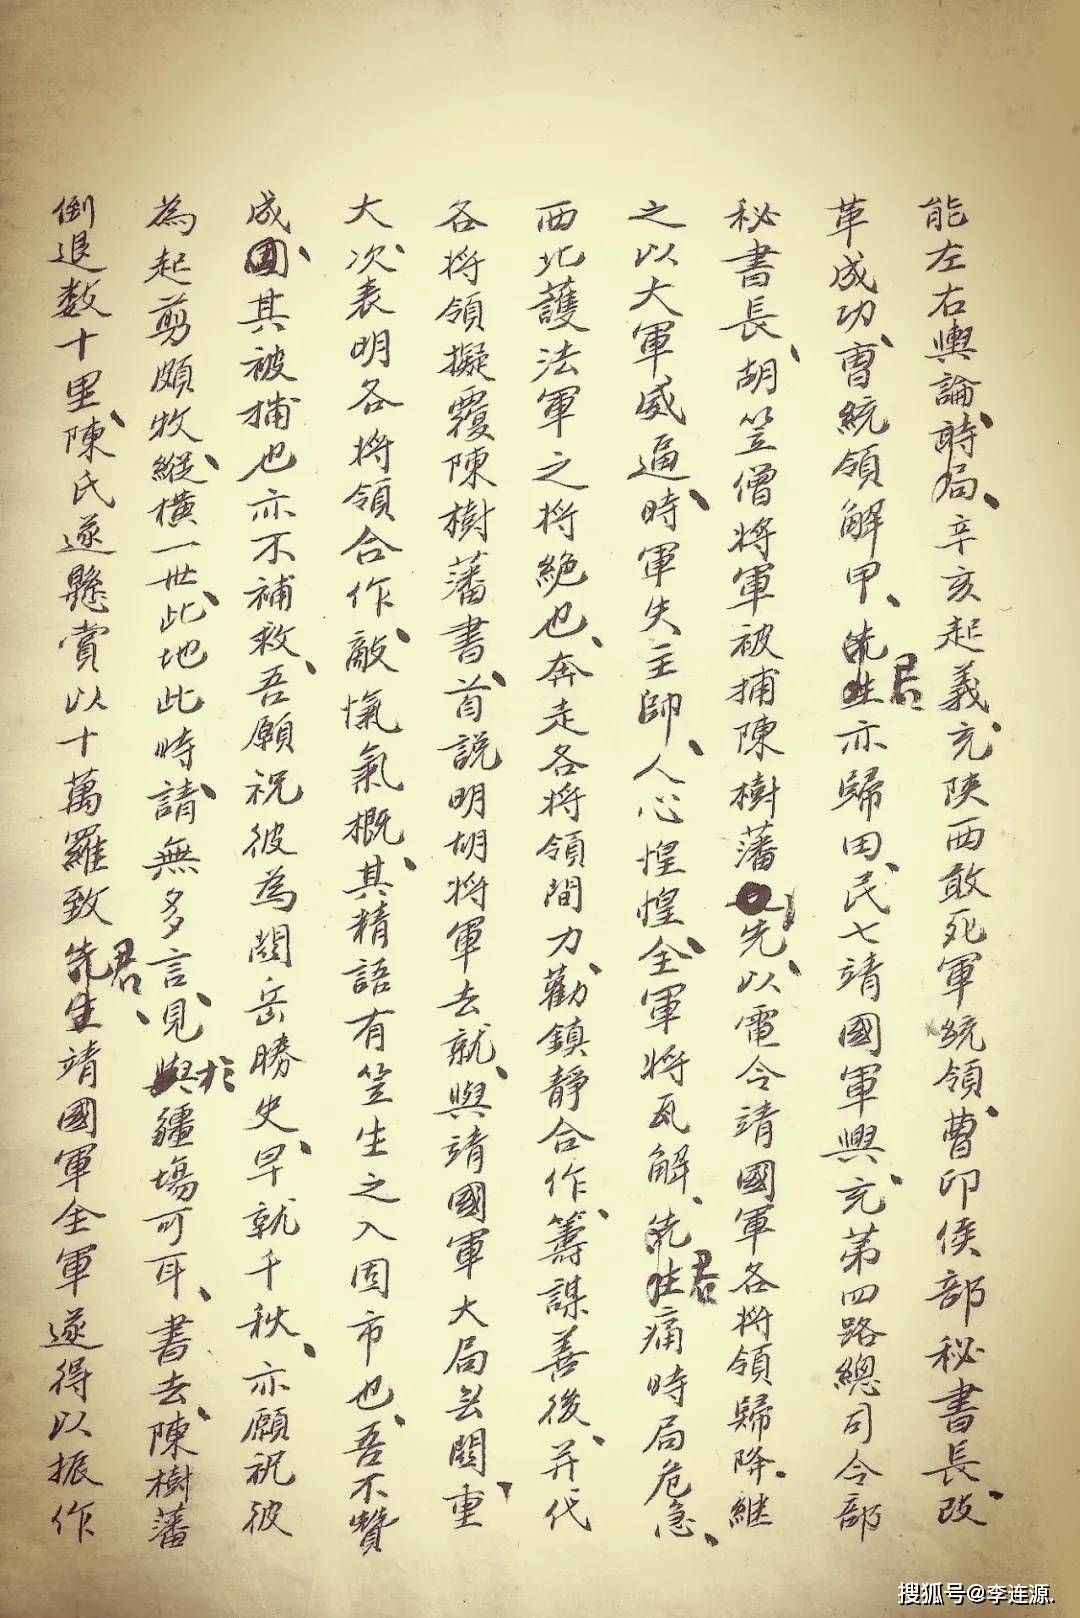 能左右輿論時局、辛亥起義、充陝西敢死軍統領、曹印侯部秘書長、改
革成功、曹統領解甲、先君亦歸田、民七靖國軍興、充第四路總司令部
秘書長、胡笠僧將軍被捕陳樹藩先、以電令靖國軍各將領歸降、継
之以大軍威逼、時軍失主帥、人心惶惶、全軍將瓦解、先君痛時局危急、
西北護法軍之將絕也、奔走各將領間、力勸鎮靜合作、籌謀善後、并代
各將領擬覆陳樹藩書、首說明胡將軍去就、與靖國軍大局無關重、
大次、表明各將領合作、敵愾氣概、其精語有笠生之入固市也、吾不贊
成、其被捕也亦不補救、吾願祝彼為閻岳勝史、早就千秋、亦願祝彼
為起剪頗牧、縱橫一世、此地此時、請無多言、見於疆場可耳、書去、陳樹藩
倒退数十里、陳氏遂懸賞以十萬羅致先君、靖國軍全軍遂得以振作
搜狐号@李连源.